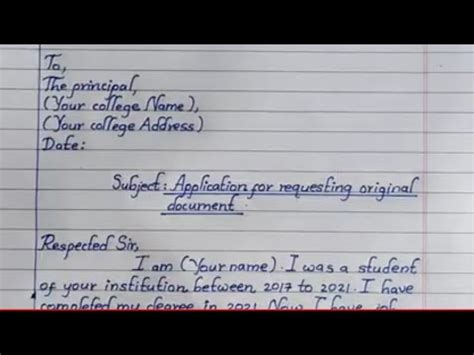 To,
The principal,
(Your college Name),
(Your college Address)
Date:
Subject: Application for requesting original
document.
Respected Sir,
I am (Your name). I was a student
of your institution between 2017 to 2021. I have
completed my degree in 2021. Now I have